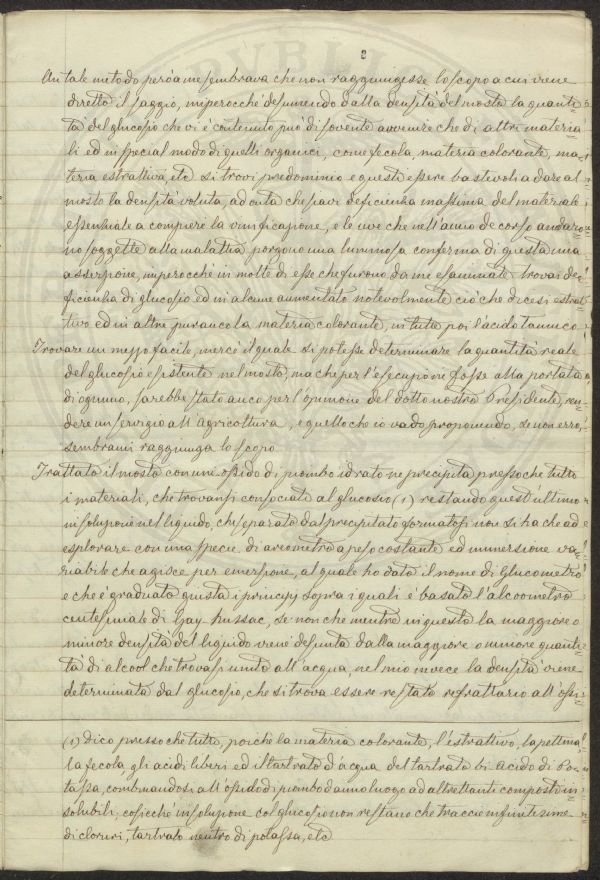 8
Un tale metodo però a me sembrava che non raggiungesse lo scopo a cui viene
diretto il saggio, imperocchè desumendo dalla densità del mosto la quanti=
tà del glucosio che vi è contenuto può di sovente avvenire che di altri materia
li ed in special modo di quelli organici, come fecola, materia colorante, ma=
teria estrattiva, etc si trovi predominio e questi essere bastevoli a dare al
mosto la densità voluta, ad onta che siavi deficienza massima del materiale
essenziale a compiere la vinificazione, e le uve che nell'anno de corso andaro=
no soggette alla malattia porgono una luminosa conferma di questa mia
asserzione, imperocchè in molte di esse che furono da me esaminate trovai de=
ficienza di glucosio ed in alcune aumentato notevolmente ciò che dicesi estrat
tivo ed in altre pur anco la materia colorante, in tutte poi l'acido tannico.
Trovare un mezzo facile, mercè il quale si potesse determinare la quantità reale
del glucosio esistente nel mosto, ma che per l'esecuzione fosse alla portata
di ognuno, sarebbe stato anco per l'opinione del dotto nostro Presidente, ren=
dere un servigio all'agricoltura, e quello che io vado proponendo, se non erro,
sembrami raggiunga lo scopo
Trattato il mosto con une ossido di piombo idrato ne precipita pressoche tutto
i materiali, che trovansi consociati al glucosio (1) restando quest'ultimo
in soluzione nel liquido, che separato dal precipitato formatosi non si ha che ad
esplorare con una specie di areometro a peso costante ed immersione va=
riabile che agisce per emersione, al quale ho dato il nome di Glucometro
e che è graduato giusta i principj sopra i quali è basato l'alcoometro
centesimale di Gay-Lussac, se non che mentre in questo la maggiore o
minore densità del liquido viene desunta dalla maggiore o minore quanti=
tà di alcool che trovasi unito all'acqua, nel mio invece la densità viene
determinata dal glucosio, che si trova essere restato refrattario all'ossi=
(1) Dico presso che tutto, poichè la materia colorante, l'estrattivo, la pettina,
la fecola, gli acidi liberi ed il tartrato d'acqua del tartrato bi acido di Po=
tassa, combinandosi all'ossido di piombo danno luogo ad altrettanti composti in=
solubili, cosicchè in soluzione col glucosio non restano che traccie infinitesime
di cloruri, tartrato neutro di potassa, etc